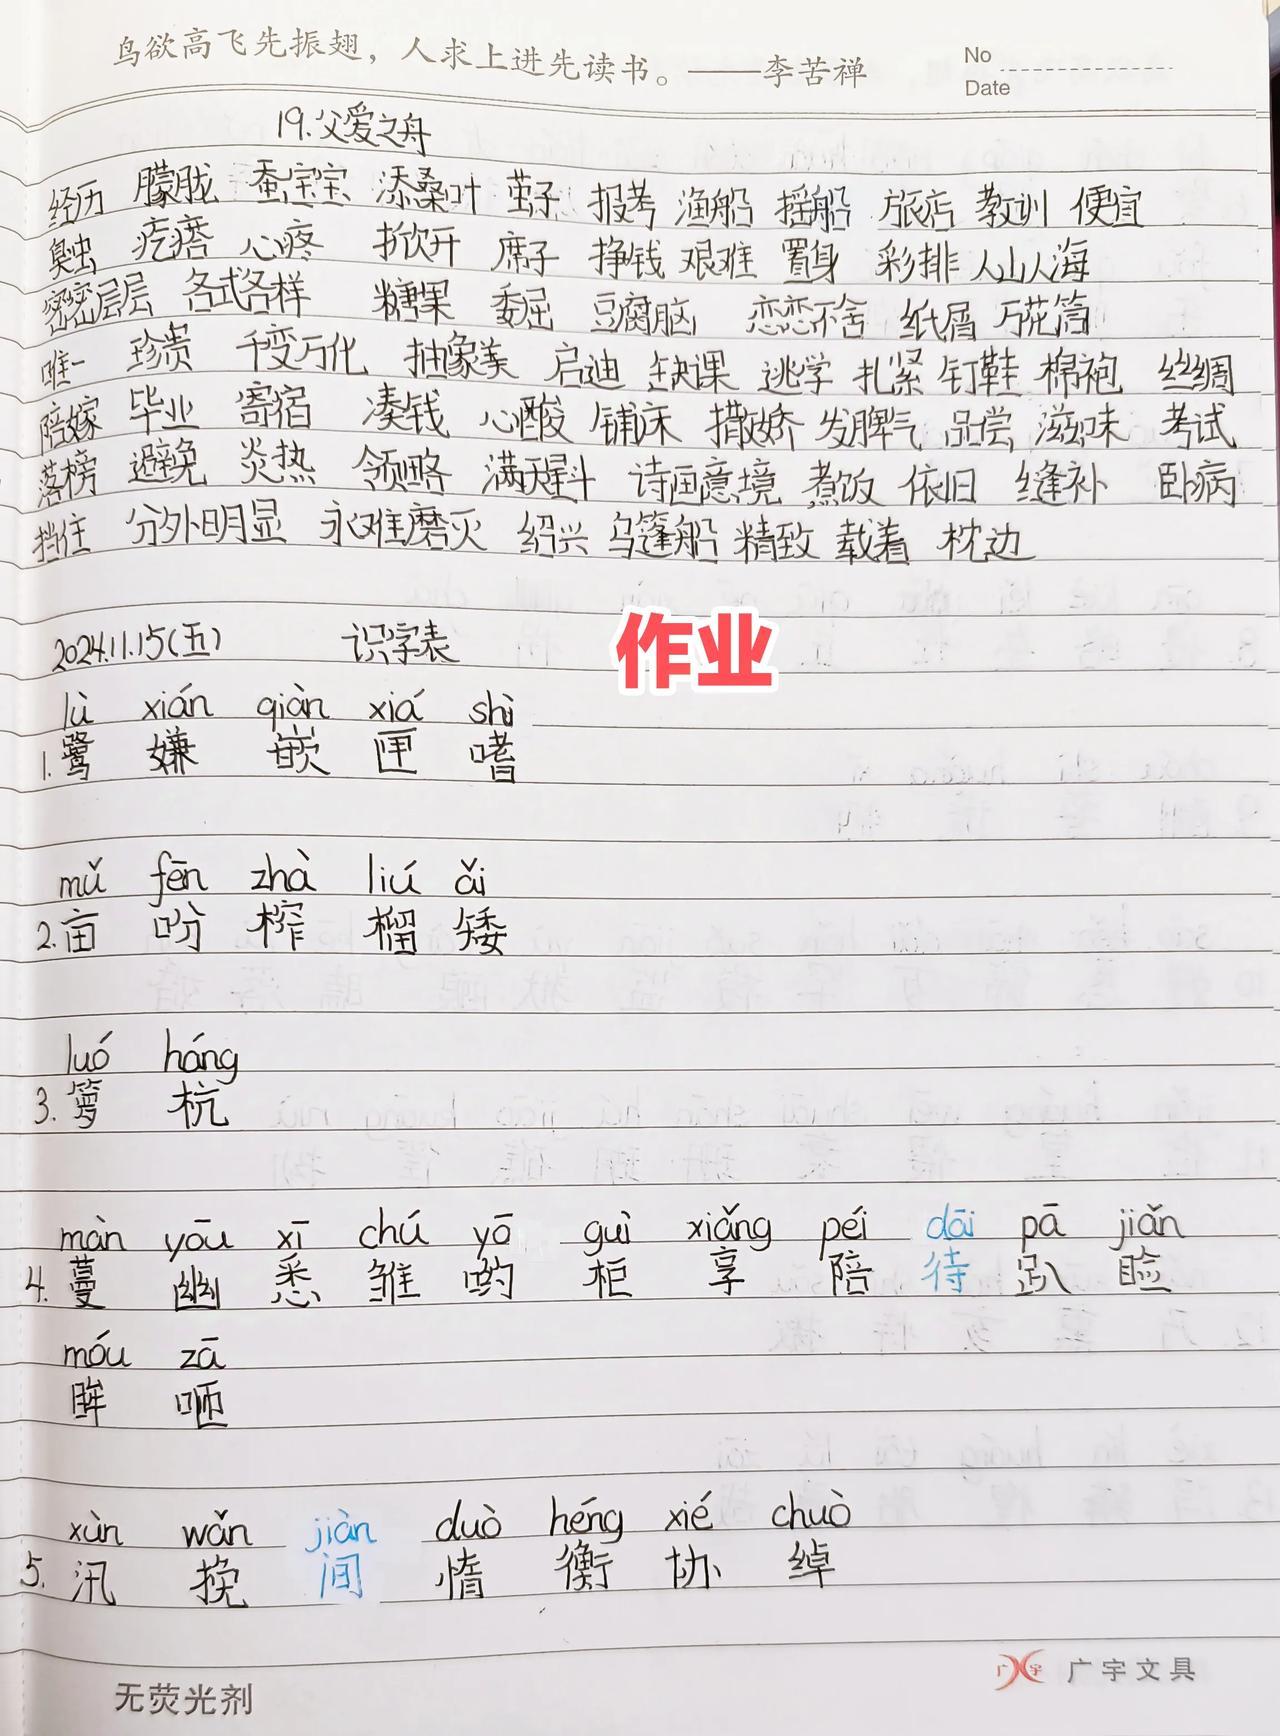 鸟欲高飞先振翅，人求上进先读书。——李苦禅
No
Date
19.父爱之舟
经历 朦胧 蚕宝宝 添桑叶 茧子 报考 渔船 摇船 旅店 教训 便宜
臭虫 疙瘩 心疼 掀开 席子 挣钱 艰难 置身 彩排 人山人海
密密层层 各式各样 糖果 委屈 豆腐脑 恋恋不舍 纸屑 万花筒
唯一 珍贵 千变万化 抽象美 启迪 缺课 逃学 扎紧 钉鞋 棉袍 丝绸
陪嫁 毕业 寄宿 凑钱 心酸 铺床 撒娇 发脾气 品尝 滋味 考试
落榜 避免 炎热 领略 满天星斗 诗画意境 煮饭 依旧 缝补 卧病
挡住 分外明显 永难磨灭 绍兴 乌篷船 精致 载着 枕边
2024.11.15(五) 识字表 作业
lù xián qiàn xiá shì
1.鹭 嫌 嵌 匣 嗜
mǔ fēn zhà liú ǎi
2.亩 吩 榨 榴 矮
luó háng
3.箩 杭
màn yōu xī chú yō guì xiǎng péi dāi pā jiǎn
4.蔓 幽 悉 雏 哟 柜 享 陪 待 趴 睑
móu zā
眸 咂
xùn wǎn jiàn duò héng xié chuò
5.汛 挽 间 惰 衡 协 绰
广宇文具
无荧光剂